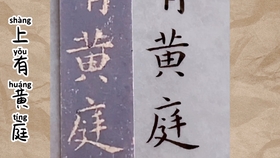 shàng
上
yǒu
有
huáng
黄
tíng
庭
有
黄
庭
黄
庭